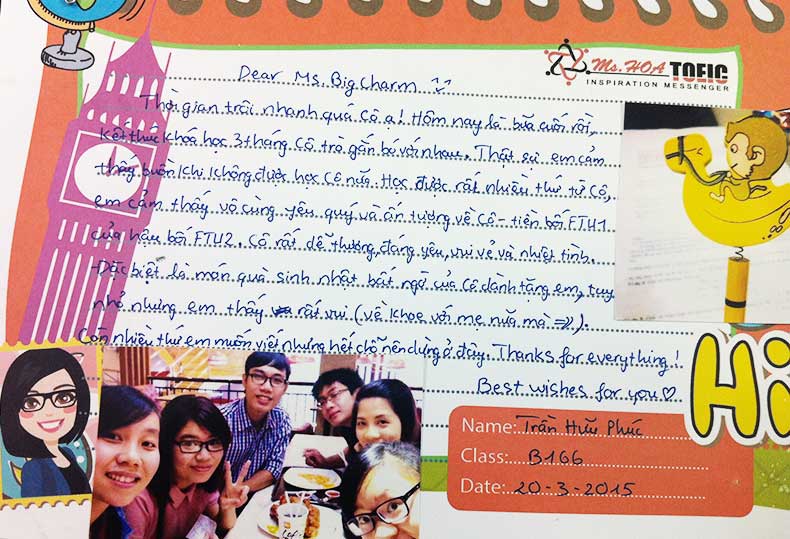 Ms. HOA TOEIC
INSPIRATION MESSENGER
Dear Ms. Big Charm
Thời gian trôi nhanh quá cô ạ! Hôm nay là bữa cuối rồi,
kết thúc khoá học 3 tháng cô trò gắn bó với nhau. Thật sự em cảm
thấy buồn khi không được học cô nữa. Học được rất nhiều thứ từ cô,
em cảm thấy vô cùng yêu quý và ấn tượng về cô - tiền bối FTU1
của hậu bối FTU2. Cô rất dễ thương, đáng yêu, vui vẻ và nhiệt tình.
Đặc biệt là món quà sinh nhật bất ngờ của cô dành tặng em, tuy
nhỏ nhưng em thấy rất vui (về khoe với mẹ nữa mà =)).
Còn nhiều thứ em muốn viết nhưng hết chỗ nên dừng ở đây. Thanks for everything!
Best wishes for you ♡
Hi
Name: Trần Hữu Phúc
Class: B166
Date: 20-3-2015